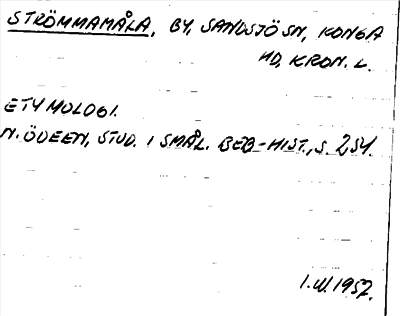 STRÖMMAMÅLA, BY, SANDSJÖ SN, KONGA
HD, KRON. L.
ETYMOLOGI.
N. ÖDEEN, STUD. I SMÅL. BEB-HIST., S. 254.
I.W. 1952.